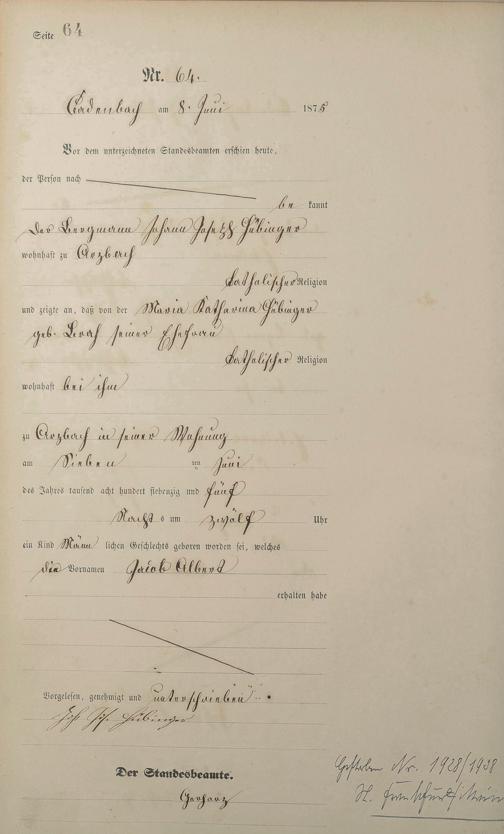 Seite 64
Nr. 64.
Cadenbach am 8. Juni 1875
Vor dem unterzeichneten Standesbeamten erschien heute,
der Person nach
be kannt
der Bergmann Johann Joseph Hübinger
wohnhaft zu Arzbach
katholischer Religion
und zeigte an, daß von der Maria Katharina Hübinger
geb. seiner Ehefrau
katholischer Religion
wohnhaft bei ihm
zu Arzbach in seiner Wohnung
am Sieben ten Juni
des Jahres tausend acht hundert siebenzig und fünf
Nacht s um zwölf Uhr
ein Kind Männ lichen Geschlechts geboren worden sei, welches
die Vornamen Jacob Albert
erhalten habe
Vorgelesen, genehmigt und unterschrieben
Joh Jos. Hübinger
Der Standesbeamte.
Gerharz
Gestorben Nr. 1928/1938
St. Frankfurt/Main